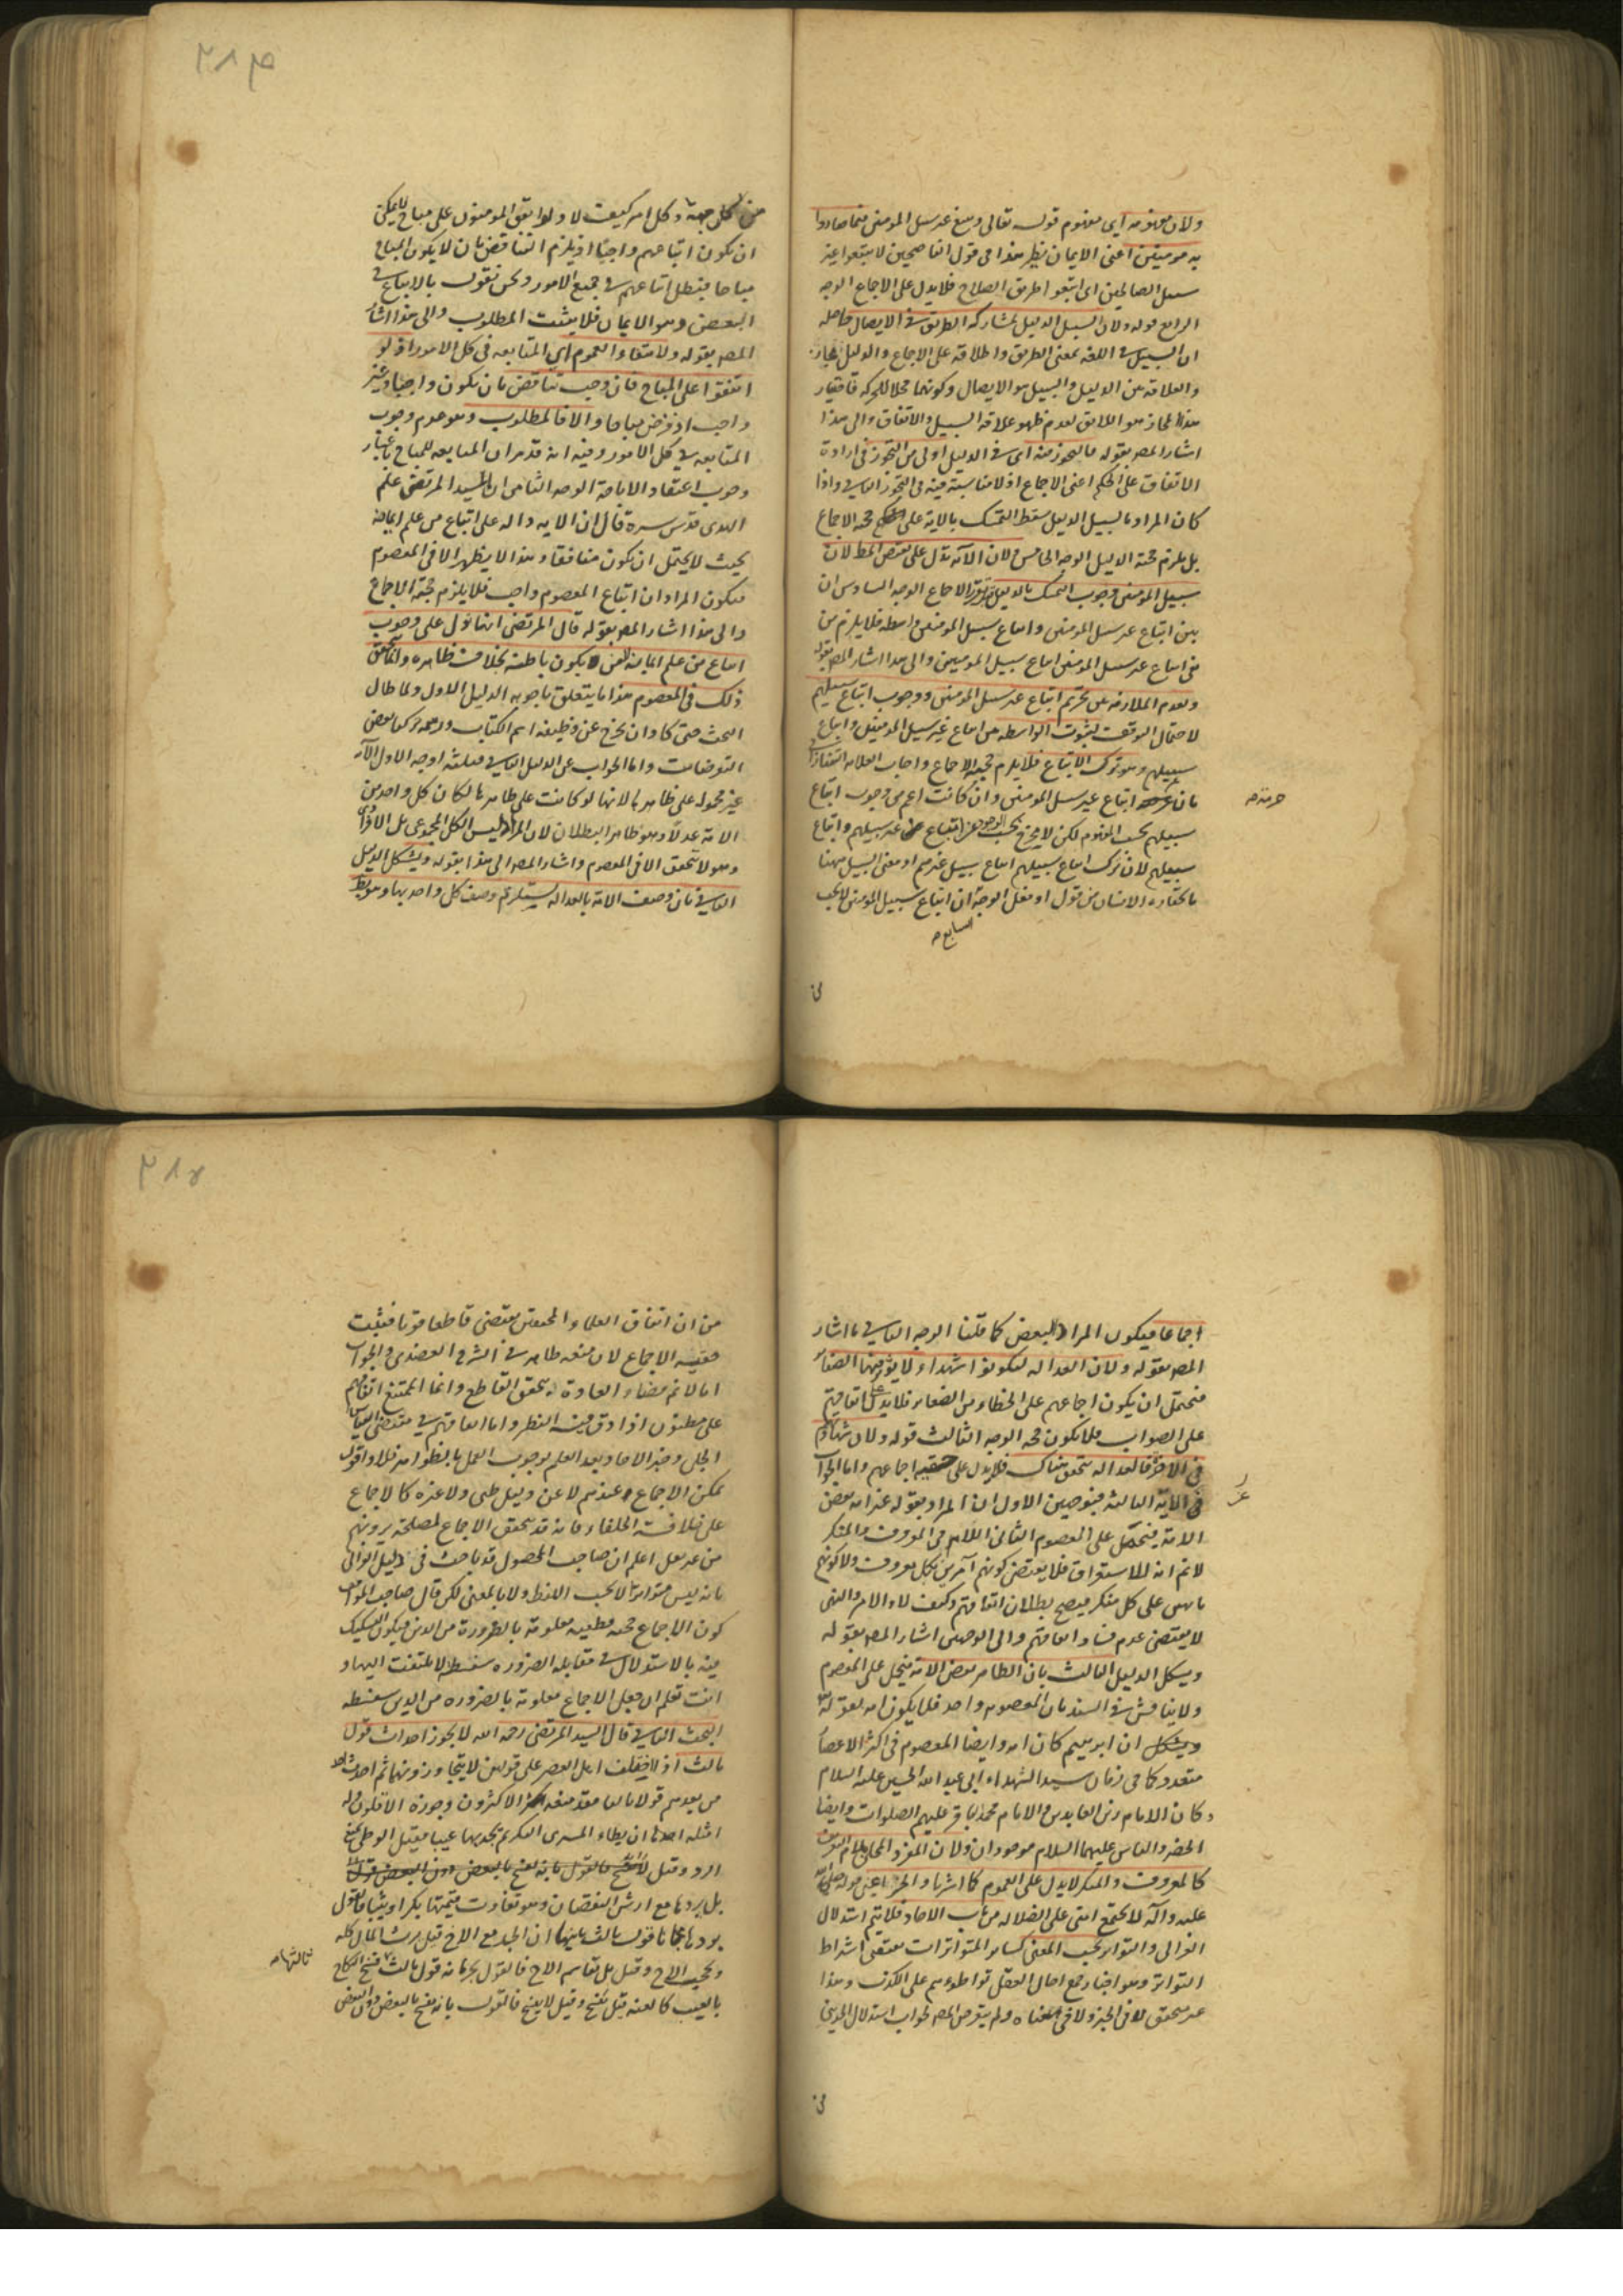 ولان مفهومه اى مفهوم قوله تعالى ويتبع غير سبيل المومنين فيما صاروا
به مومنين اعنى الايمان نظير هذا فى قول الناصحين لا تتبعوا غير
سبيل الصالحين اى اتبعوا طريق الصلاح فلا يدل على الاجماع الوجه
الرابع قوله ولان السبيل الدليل لمشاركه الطريق فى الايصال حاصله
ان السبيل فى اللغه بمعنى الطريق واطلاقه على الاجماع والدليل مجاز
والعلاقه بين الدليل والسبيل هو الايصال وكونهما محلا للحركه فاختيار
هذا المجاز هو اللايق لعدم ظهور علاقه السبيل والاتفاق والى هذا
اشار المص بقوله فالتجوز فيه اى فى الدليل اولى من التجوز فى ارادة
الاتفاق على الحكم اعنى الاجماع اذ لا مناسبة فيه فى التجوز الثانى واذا
كان المراد بالسبيل الدليل سقط التمسك بالاية على حجه الاجماع
بل يلزم حجته الدليل الوجه الخامس ولان الآيه تدل على نقيض المط لان
سبيل المومنين وجوب التمسك بالدليل الاجماع الوجه السادس ان
بين اتباع غير سبيل المومنين واتباع سبيل المومنين واسطه فلا يلزم من
نفى اتباع غير سبيل المومنين اتباع سبيل المومنين والى هذا اشار المص بقوله
ولعدم الملازمه بين تحريم اتباع غير سبيل المومنين ووجوب اتباع سبيلهم
لاحتمال التوقف لثبوت الواسطه بين اتباع غير سبيل المومنين واتباع
سبيلهم وهو ترك الاتباع فلا يلزم حجيه الاجماع واجاب العلامه التفتازانى
بان اتباع غير سبيل المومنين وان كانت اعم من وجوب اتباع
سبيلهم بحسب المفهوم لكن لا مخرج بحسب الوجود عن اتباع غير سبيلهم واتباع
سبيلهم لان ترك اتباع سبيلهم اتباع سبيل غيرهم او معنى السبيل ههنا
ما يختاره الانسان من قول او فعل الوجه ان اتباع سبيل المومنين لا يجب
السابع
فى
من كل جهة وكل امر كيف لا ولو اتفق المومنون على مباح لا يمكن
ان يكون اتباعهم واجبا اذ يلزم التناقض بان لا يكون المباح
مباحا فبطل اتباعهم فى جميع الامور ونحن نقول بالاتباع فى
البعض وهو الايمان فلا يثبت المطلوب والى هذا اشار
المص بقوله ولامتناع العموم اى المتابعه فى كل الامور اذ لو
اتفقوا على المباح فان وجب تناقض بان يكون واجبا وغير
واجب اذ فرض مباحا والا فالمطلوب وهو عدم وجوب
المتابعه فى كل الامور وفيه انه قد مر ان المتابعه للمباح باعتبار
وجوب اعتقاد الاباحة الوجه الثامن ان السيد المرتضى علم
الهدى قدس سره قال ان الايه داله على اتباع من علم ايمانه
بحيث لا يحتمل ان يكون منافقا وهذا لا يظهر الا فى المعصوم
فيكون المراد ان اتباع المعصوم واجب فلا يلزم حجته الاجماع
والى هذا اشار المص بقوله قال المرتضى انما تدل على وجوب
اتباع من علم ايمانه لا من يكون باطنه بخلاف ظاهره وانما يتحقق
ذلك فى المعصوم هذا ما يتعلق باجوبه الدليل الاول ولما طال
البحث حتى كاد ان يخرج عن وظيفه اهم الكتاب بعض
التوضيحات واما الجواب عن الدليل الثانى فبثلثه اوجه الاول الآيه
غير محموله على ظاهرها لانها لو كانت على ظاهرها لكان كل واحد من
الامة عدلا وهو ظاهر البطلان لان المراد ليس الكل المجموعى بل الافرادى
وهو لا يتحقق الا فى المعصوم واشار المص الى هذا بقوله ويشكل الدليل
الثانى بان وصف الامة بالعداله يستلزم وصف كل واحد بها وهو بط
اجماعا فيكون المراد البعض كما قلنا الوجه الثانى ما اشار
المص بقوله ولان العداله ليكونوا شهداء ولا يؤثر فيها الصغاير
فيحتمل ان يكون اجماعهم على الخطاء من الصغاير فلا يدل على اتفاقهم
على الصواب فلا يكون حجه الوجه الثالث قوله ولان شهادتهم
فى الاخرة فالعداله تتحقق هناك فلا يدل على حقيه اجماعهم واما الجواب
فى الآية الثالثة فبوجهين الاول ان المراد بقوله خير امه بعض
الامة فيحمل على المعصوم الثانى اللام فى المعروف والمنكر
لا نم انه للاستغراق فلا يقتضى كونهم آمرين بكل معروف ولا كونهم
ناهين على كل منكر فيصح بطلان اتفاقهم وكيف لا والامر والنهى
لا يقتضى عدم فساد اتفاقهم والى الوجهين اشار المص بقوله
ويشكل الدليل الثالث بان الظاهر بعض الامة فيحمل على المعصوم
ولا يناقش فى السند بان المعصوم واحد فلا يكون امه لقوله تع
ان ابرهيم كان امه وايضا المعصوم فى اكثر الاعصار
متعدد كما فى زمان سيد الشهداء ابى عبد الله الحسين عليه السلام
وكان الامام زين العابدين والامام محمد الباقر عليهم الصلوات وايضا
الخضر والياس عليهما السلام موجودان ولان المفرد المحلى بلام التعريف
كالمعروف والمنكر لا يدل على العموم كما اشرنا والخبر اعنى قوله صلى الله
عليه وآله لا تجتمع امتى على الضلاله من باب الاحاد فلا يتم استدلال
الغزالى والتواتر بحسب المعنى كساير المتواترات منتفى اشراط
التواتر وهو اخبار جمع احال العقل تواطوءهم على الكذب وهذا
غير متحقق لا فى الخبر ولا فى معناه ولم يتعرض المص لجواب استدلال الجوينى
فى
من ان اتفاق العلماء المحققين يقتضى قاطعا قويا فيثبت
حقيه الاجماع لان منعه ظاهر فى الشرح العضدى والجواب
انا لا نم قضاء العادة بتحقق القاطع وانما الممتنع اتفاقهم
على مظنون اذا دق فيه النظر واما اتفاقهم فى مقتضى القياس
الجلى وخبر الاحاد بعد العلم بوجوب العمل بالظواهر فلا واقول
يمكن الاجماع عندهم لا عن دليل ظنى ولا غيره كالاجماع
على خلافة الخلفاء فانه قد يتحقق الاجماع لمصلحة يرونهم
من غير دليل اعلم ان صاحب المحصول قد باحث فى دليل الغزالى
بانه ليس متواترا لا بحسب اللفظ ولا بالمعنى لكن قال صاحب المواقف
كون الاجماع حجه قطعيه معلومة بالضرورة من الدين فيكون التشكيك
فيه بالاستدلال فى مقابله الضروره سفسطة لا يلتفت اليها و
انت تعلم ان جعل الاجماع معلومة بالضروره من الدين سفسطه
البحث الثانى قال السيد المرتضى رحمه الله لا يجوز احداث قول
ثالث اذا اختلف اهل العصر على قولين لا يتجاوزونهما ثم احدث
من بعدهم قولا ثالثا فقد منعه الاكثرون وجوزه الاقلون وله
امثله احدها ان يطاء المشترى البكر ثم يجد بها عيبا فقيل الوطى يمنع
الرد وقيل
بل يردها مع ارش النقصان وهو تفاوت قيمتها بكرا وثيبا فالقول
بردها مجانا قول ثالث ثانيها ان الجد مع الاخ قيل يرث المال كله
ويحجب الاخ وقيل بل يقاسم الاخ فالقول بحرمانه قول ثالث فسخ النكاح
ثالثها
بالعيب كالعنه قيل يفسخ وقيل لا يفسخ فالقول بانه يفسخ بالبعض دون البعض